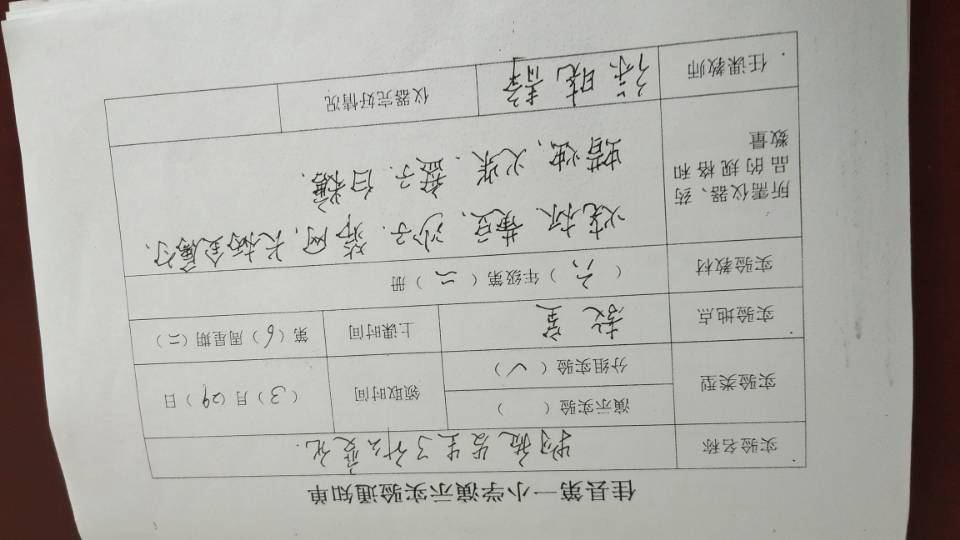 佳县第一小学演示实验通知单
实验名称 物质发生了什么变化.
实验类型 演示实验（ ） 领取时间 （3）月（29）日
分组实验（✓）
实验地点 教室 上课时间 第（6）周星期（二）
实验教材 （六）年级第（二）册
所需仪器、药品的规格和数量 烧杯、黄豆、沙子、筛网、长柄金属勺、
蜡烛、火柴、盘子、白糖、
任课教师 晓 仪器完好情况